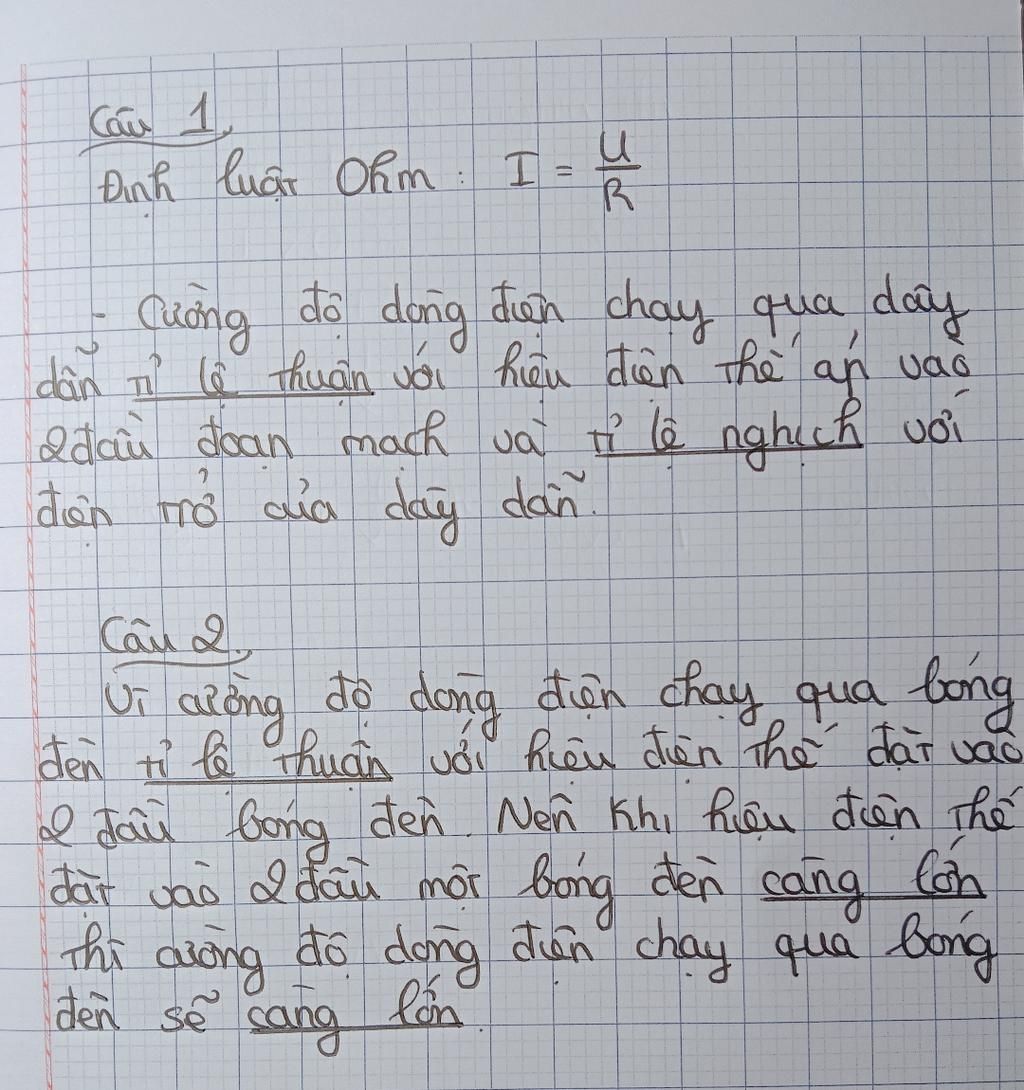 Câu 1.
Định luật Ohm : I = U/R
- Cường độ dòng điện chạy qua dây
dẫn tỉ lệ thuận với hiệu điện thế áp vào
2 đầu đoạn mạch và tỉ lệ nghịch với
điện trở của dây dẫn.
Câu 2.
Vì cường độ dòng điện chạy qua bóng
đèn tỉ lệ thuận với hiệu điện thế đặt vào
2 đầu bóng đèn. Nên khi hiệu điện thế
đặt vào 2 đầu một bóng đèn càng lớn
thì cường độ dòng điện chạy qua bóng
đèn sẽ càng lớn.